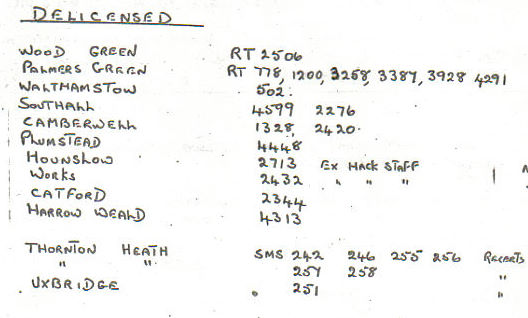 DELICENSED
WOOD GREEN RT 2506
PALMERS GREEN RT 778, 1200, 3258, 3387, 3928 4291
WALTHAMSTOW 502.
SOUTHALL 4599 2276
CAMBERWELL 1328, 2420.
PLUMSTEAD 4448
HOUNSLOW 2713 EX HACK STAFF
WORKS 2432 " " "
CATFORD 2344
HARROW WEALD 4313
THORNTON HEATH SMS 242 246 255 256 RECERTS
" " 257 258 "
UXBRIDGE 251 "